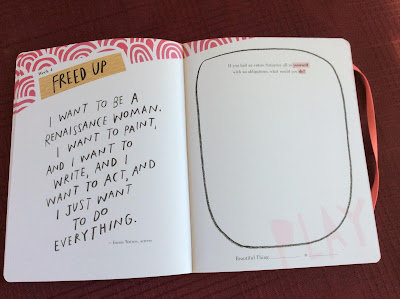 Week 4
FREED UP
I WANT TO BE A
RENAISSANCE WOMAN.
I WANT TO PAINT,
AND I WANT TO
WRITE, AND I
WANT TO ACT, AND
I JUST WANT
TO DO
EVERYTHING.
– Emma Watson, actress
If you had an entire Saturday all to yourself,
with no obligations, what would you do?
PLAY
Beautiful Thing